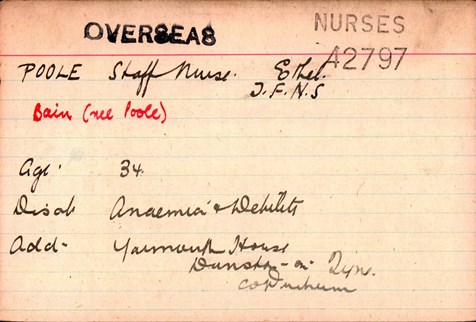 OVERSEAS
NURSES
42797
POOLE Staff Nurse. Ethel.
T.F.N.S
Bain (nee Poole)
Age: 34
Disab Anaemia & Debility
Add- Yarmouth House
Dunston-on-Tyne.
Co Durham